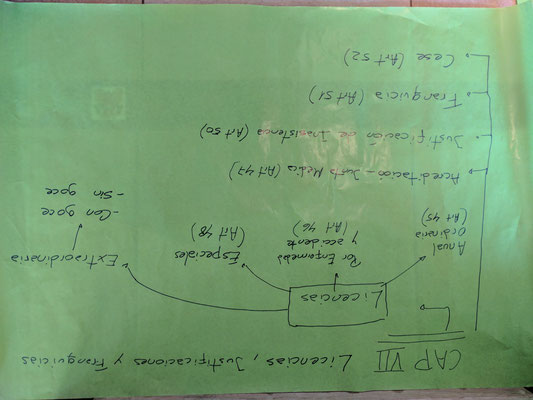 CAP VII Licencias, Justificaciones y Franquicias
Licencias
Anual
Ordinaria
(Art 45)
Por Enfermedad
y accidente
(Art 46)
Especiales
(Art 48)
Extraordinaria
-Con goce
-Sin goce
Acreditación - Junta Medica (Art 47)
Justificación de Inasistencia (Art 50)
Franquicia (Art 51)
Cese (Art 52)